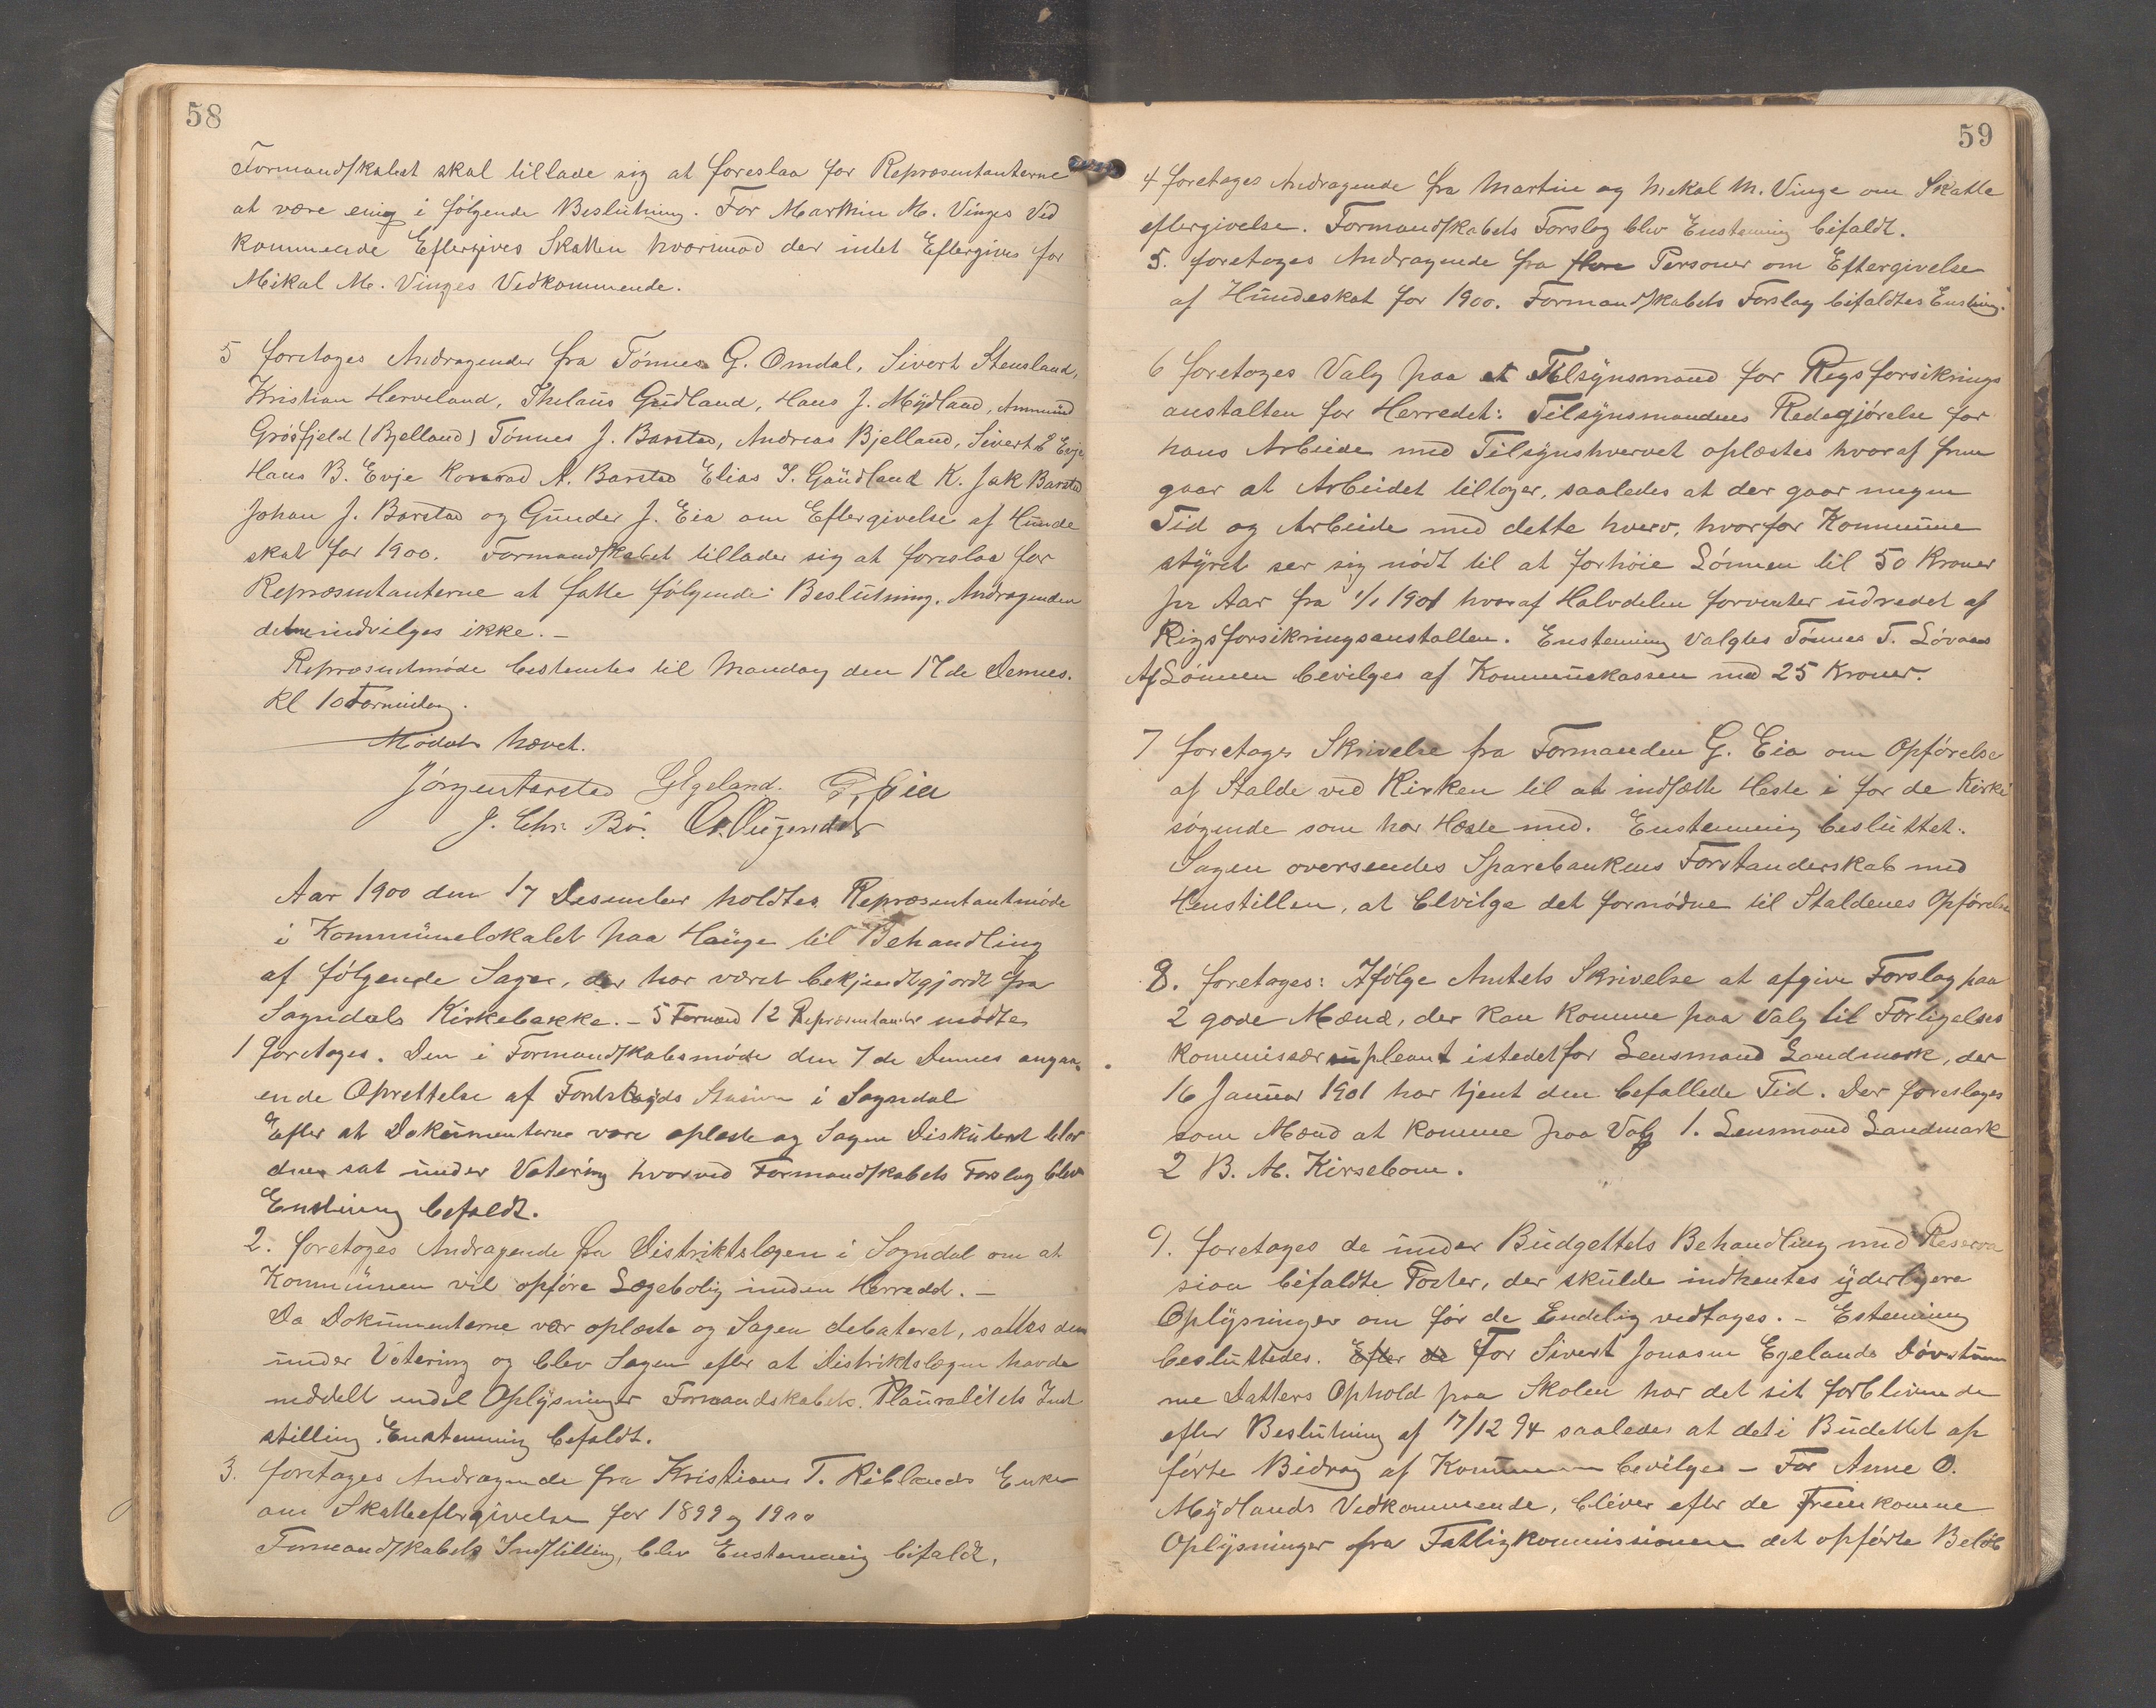 58
Formandskabet skal tillade sig at foreslaa for Repræsentanterne
at være enig i følgende Beslutning. For Marthin M. Vinges Ved
kommende Eftergives Skatten hvorimod der intet Eftergives for
Mikal M. Vinges Vedkommende.
5 foretoges Andragender fra Tønnes G. Omdal, Sivert Stensland,
Kristian Herveland, Thelaus Gudland, Hans J. Mydland, Ammund
Grøsfjeld (Bjelland) Tønnes J. Barstad, Andreas Bjelland, Sivert Evje
Hans B. Evje Konrad A. Barstad Elias T. Gaudland K. Jak Barstad
Johan J. Barstad og Gunder J. Eia om Eftergivelse af Hunde
skat for 1900. Formandskabet tillader sig at foreslaa for
Repræsentanterne at fatte følgende: Beslutning. Andragenden
de indvilges ikke. –
Repræsentmøde bestemtes til Mandag den 17de Dennes.
Kl 10 Formidag.
Mødet hævet.
Jørgen Aarstad G Egeland. G. Eia
J. Chr. Bø.
Aar 1900 den 17 Desember holdtes Repræsentantmøde
i Kommunelokalet paa Hauge til Behandling
af følgende Sager, der har været bekjendtgjordt fra
Sogndals Kirkebakke. – 5 Formd 12 Repræsentanter mødte
1 foretoges. Den i Formandskabsmøde den 7de Dennes angaa
ende Oprettelse af Stasion i Sogndal
Efter at Dokumenterne vare oplæste og Sagen Diskuteret blev
den sat under Votering hvorved Formandskabets Forslag blev
Enstemig befaldt.
2. foretoges Andragende fra Distriktslægen i Sogndal om at
Kommunen vil opføre Lægebolig inden Herredd. –
Da Dokumenterne var oplæste og Sagen debateret, sattes den
under Votering og blev Sagen efter at Distriktslægen havde
meddelt endel Oplysninger Formandskabets. Plauralitets Ind
stilling. Enstemmig befaldt.
3. foretoges Andragende fra Kristians T. Riblands Enke
om Skatteeftergivelse for 1899 og 1900
Formandskabets Indstilling, blev Enstemmig bifaldt,
59
4 foretoges Andragende fra Martin og Mekal M. Vinge om Skatte
eftergivelse. Formandskabets Forslag blev Enstemig bifaldt.
5. foretoges Andragende fra flere Personer om Eftergivelse
af Hundeskat for 1900. Formandskabets Forslag bifaldtes Enstemig.
6 foretoges Valg paa et Tilsynsmand for Regsforsikrings
anstalten for Herredet: Tilsynsmandens Redegjørelse for
hans Arbeide med Tilsynshvervet oplæstes hvoraf frem
gaar at Arbeidet tiltager, saaledes at der gaar megen
Tid og Arbeide med dette hverv, hvorfor Kommune
styret ser sig nødt til at forhøie Lønnen til 50 Kroner
pr Aar fra 1/1 1901 hvoraf Halvdelen forventer udredet af
Rigsforsikringsanstalten. Enstemig Valgtes Tønnes T. Løvaas
Af Lønnen bevilges af Kommunekassen med 25 Kroner.
7 foretoges Skrivelse fra Formanden G. Eia om Opførelse
af Stalde ved Kirken til at indsætte Heste i for de Kirke
søgende som har Hæste med. Enstemmig besluttet.
Sagen oversendes Sparebankens Forstanderskab med
Henstillen, at blvilge det fornødne til Staldenes Opførelse
8. foretoges: Ifølge Amtets Skrivelse at afgive Forslag paa
2 gode Mænd, der kan komme paa Valg til Forligelses
kommissær supleant istedetfor Lensmand Landmark, der
16 Januar 1901 har tjent den befallede Tid. Der foresloges
som Mænd at komme paa Valg 1. Lensmand Landmark
2 B. M. Kirsebom.
9. foretoges de under Budgettets Behandling med Reserva
sion bifaldte Poster, der skulde indhentes yderligere
Oplysninger om før de Endelig vedtages. – Estemig
besluttedes. Efter de For Sivert Jonasen Egelands Døvstum
me Datters Ophold paa Skolen har det sit forblivende
efter Beslutning af 17/12 94 saaledes at det i Budettet op
førte Bidrag af Kommunen bevilges – For Anne O.
Mydlands Vedkommende, bliver efter de Fremkomne
Oplysninger fra Fattigkommissionen det opførte Beløb